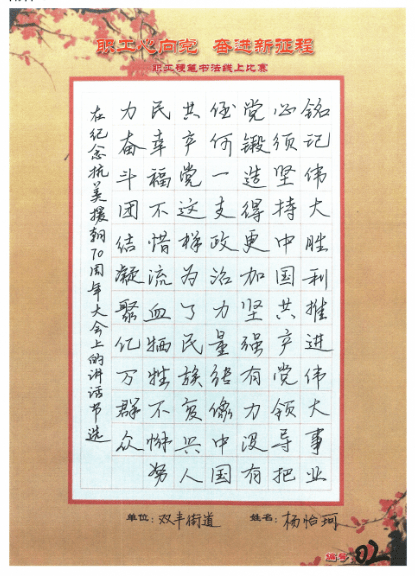 职工心向党 奋进新征程
职工硬笔书法线上比赛
铭记伟大胜利推进伟大事业
必须坚持中国共产党领导把
党锻造得更加坚强有力没有
任何一支政治力量能像中国
共产党这样为了民族复兴人
民幸福不惜流血牺牲不懈努
力奋斗团结凝聚亿万群众
在纪念抗美援朝70周年大会上的讲话节选
单位:双丰街道 姓名:杨怡珂
编号 02